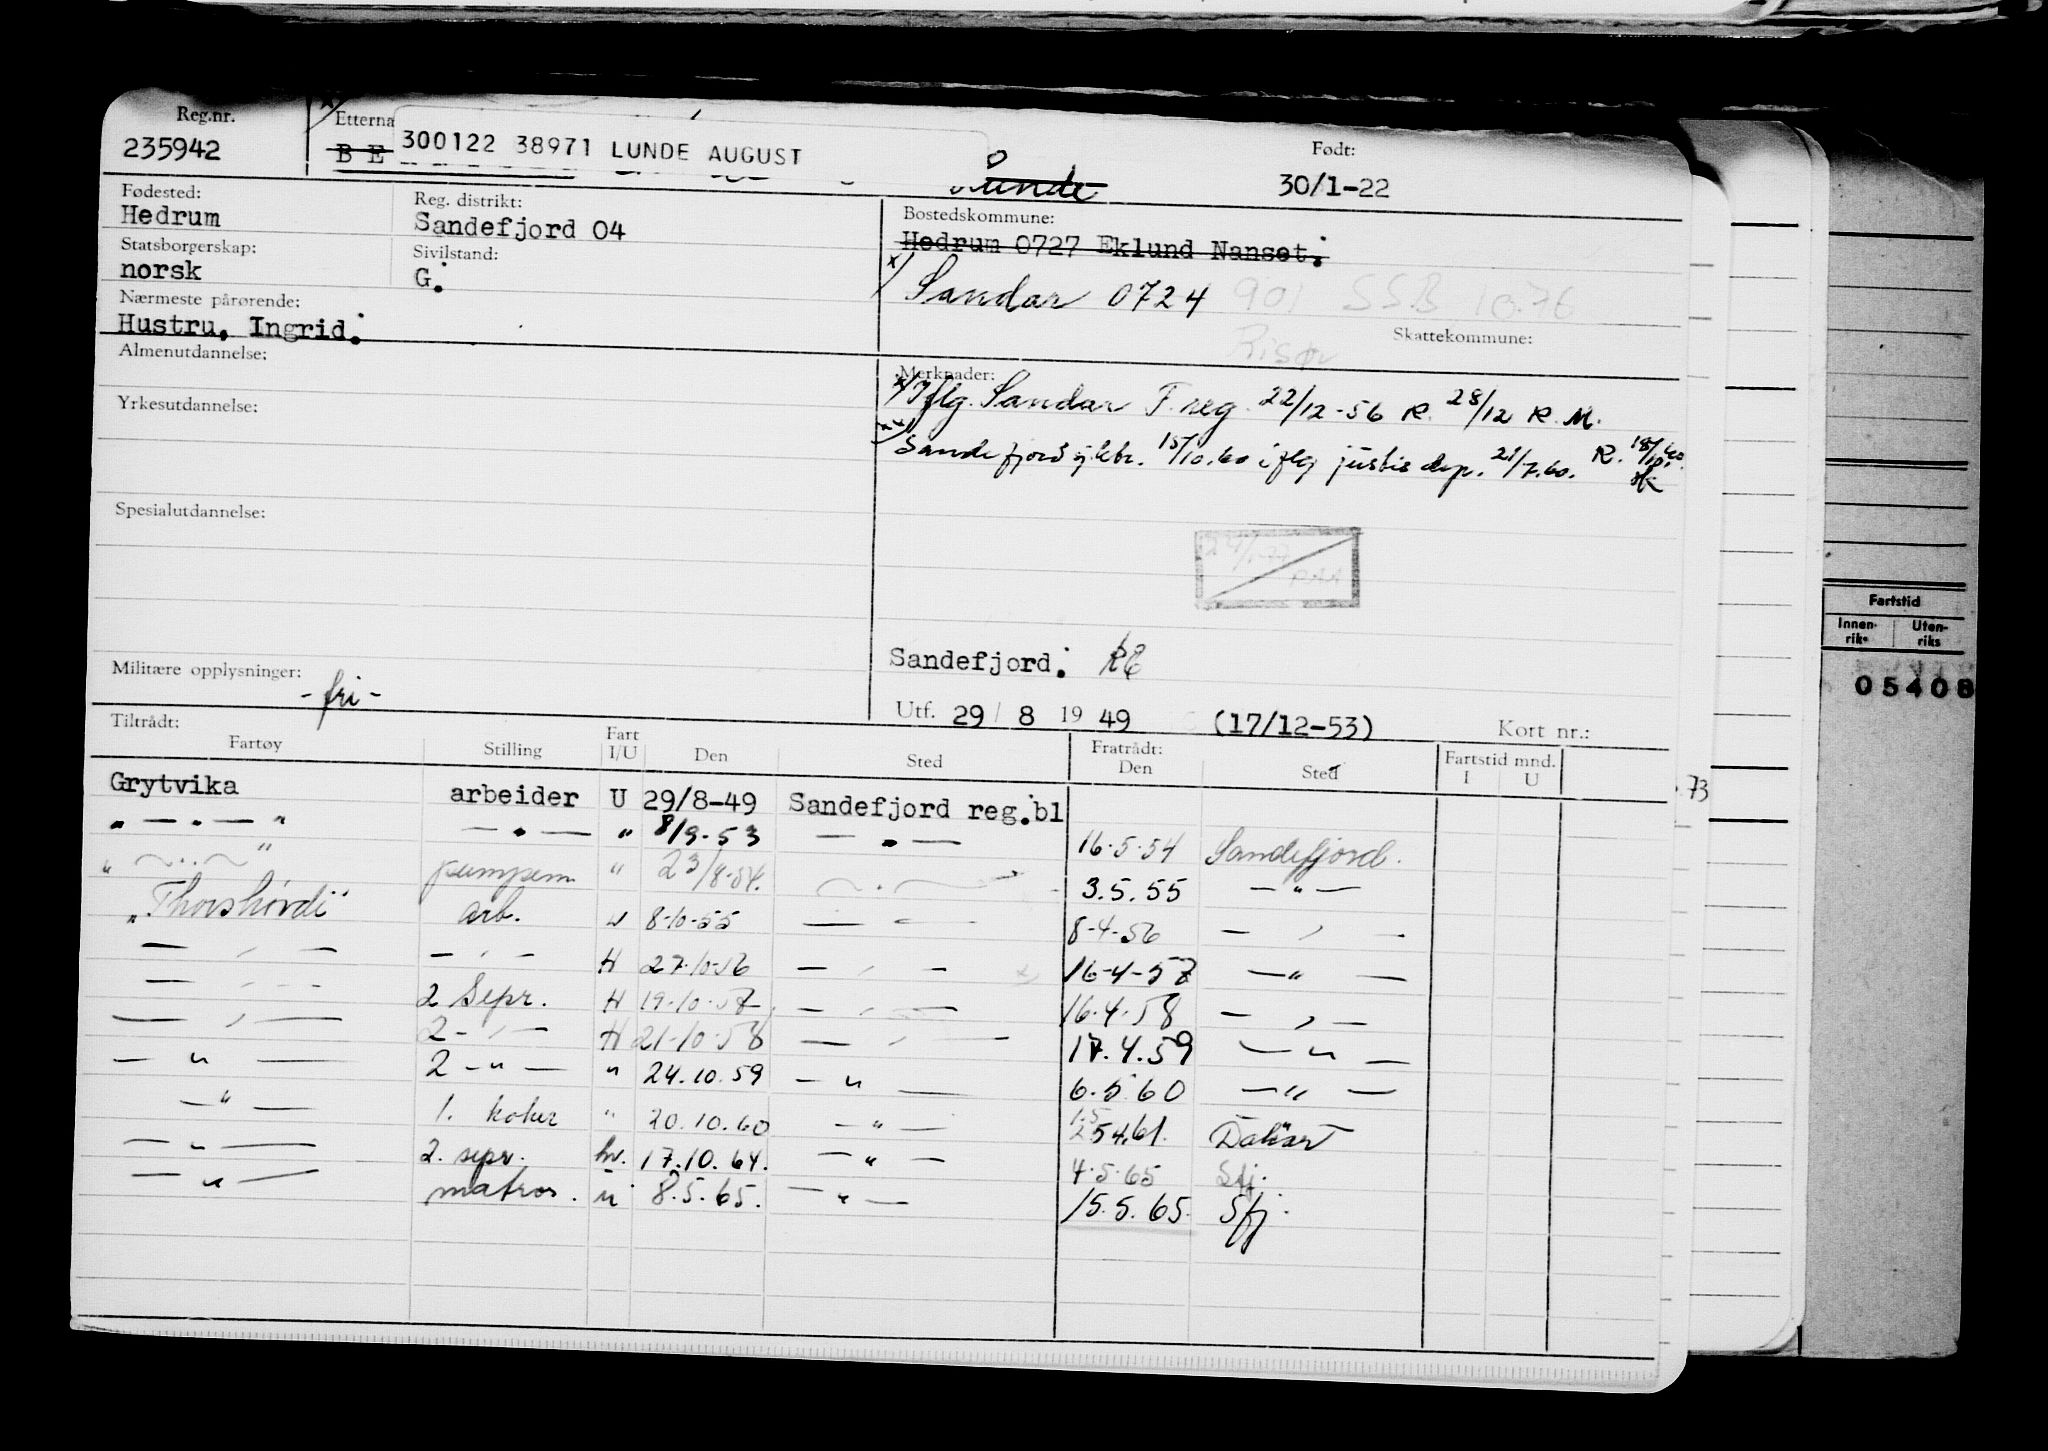 Reg.nr. Etterna Født:
235942 B E 300122 38971 LUNDE AUGUST Lunde 30/1-22
Fødested: Reg. distrikt: Bostedskommune:
Hedrum Sandefjord 04 Hedrum 0727 Eklund Nanset.
Statsborgerskap: Sivilstand:
norsk G. x/ Sandar 0724 901 SSB 10.76
Nærmeste pårørende: Risør Skattekommune:
Hustru, Ingrid.
Almenutdannelse: Merknader:
x/ Iflg. Sandar F.reg. 22/12-56 R. 28/12 R. M.
Yrkesutdannelse:
Sandefjord sjkbr. 15/10.60 iflg justisdep. 21/7.60. R. 18/10.60
Spesialutdannelse:
Sandefjord.
Militære opplysninger: -fri-
Utf. 29/ 8 19 49 (17/12-53) Kort nr.:
Tiltrådt: Fratrådt:
Fartøy Stilling Fart I/U Den Sted Den Sted Fartstid mnd. I U
Grytvika arbeider U 29/8-49 Sandefjord reg.bl
" — " — " — " — " 8/9-53 — " — 16.5.54 Sandefjord.
" — " — " pumpem " 23/8-54. — " — 3.5.55 — " —
"Thorshövdi" arb. " 8-10-55 — " — 8-4-56 — " —
— " — — " — H 27.10-56 — " — 16-4-57 — " —
— " — 2 Sepr. H 19.10.57 — " — 16.4.58 — " —
— " — 2 — " — H 21-10-58 — " — 17.4.59 — " —
— " — 2 — " — " 24.10.59 — " — 6.5.60 — " —
— " — 1. koker " 20.10.60 — " — Dakar
— " — 2. sepr. hv. 17.10.64. — " — 4.5.65 Sfj.
— " — matros. u 8.5.65. — " — 15.5.65. Sfj.
Fartstid
Innen-riks Uten-riks
05408
73